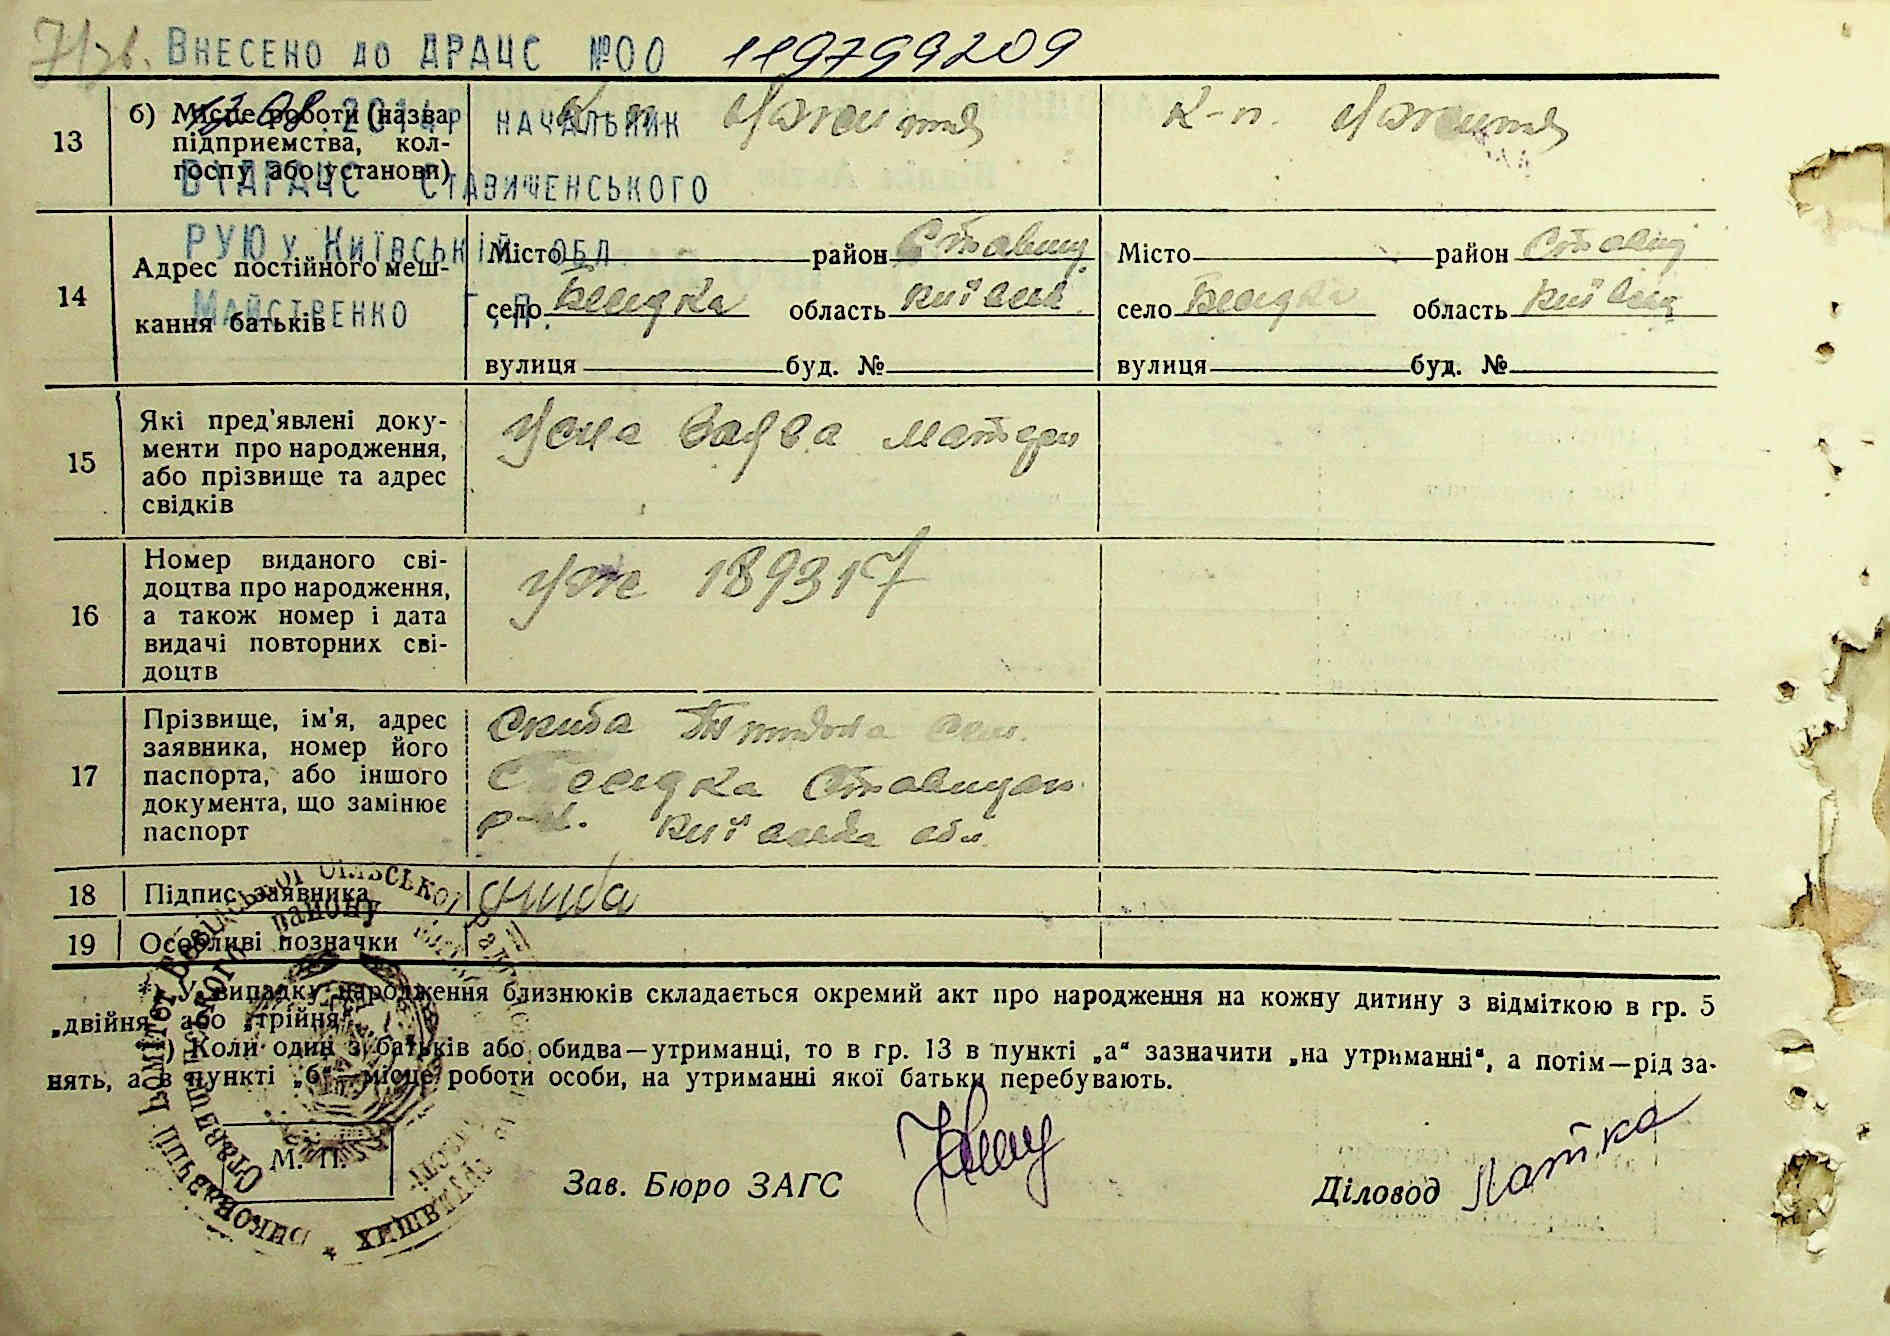 71зв. Внесено до ДРАЦС №00 119799209
13
б) Місце роботи (назва
підприємства, кол-
госпу або установи)
К-п Жовтня
К-п. Жовтня
2014р НАЧАЛЬНИК
ВІДРАЦС СТАВИЩЕНСЬКОГО
РУЮ у Київській обл.
Майстренко Г.П.
14
Адрес постійного меш-
кання батьків
Місто район Ставищ
село Бесідка область Київськ
вулиця буд. №
Місто район Ставищ
село Бесідка область Київськ
вулиця буд. №
15
Які пред'явлені доку-
менти про народження,
або прізвище та адрес
свідків
Усна заява матери
16
Номер виданого сві-
доцтва про народження,
а також номер і дата
видачі повторних сві-
доцтв
189317
17
Прізвище, ім'я, адрес
заявника, номер його
паспорта, або іншого
документа, що замінює
паспорт
Скиба
Бесідка Ставищан
р-н. Київська обл.
18
Підпис заявника
Скиба
19
Особливі позначки
*) У випадку народження близнюків складається окремий акт про народження на кожну дитину з відміткою в гр. 5
„двійня" або „трійня".
*) Коли один з батьків або обидва—утриманці, то в гр. 13 в пункті „а" зазначити „на утриманні", а потім—рід за-
нять, а в пункті „б"—місце роботи особи, на утриманні якої батьки перебувають.
М. П.
Зав. Бюро ЗАГС
Діловод Латка